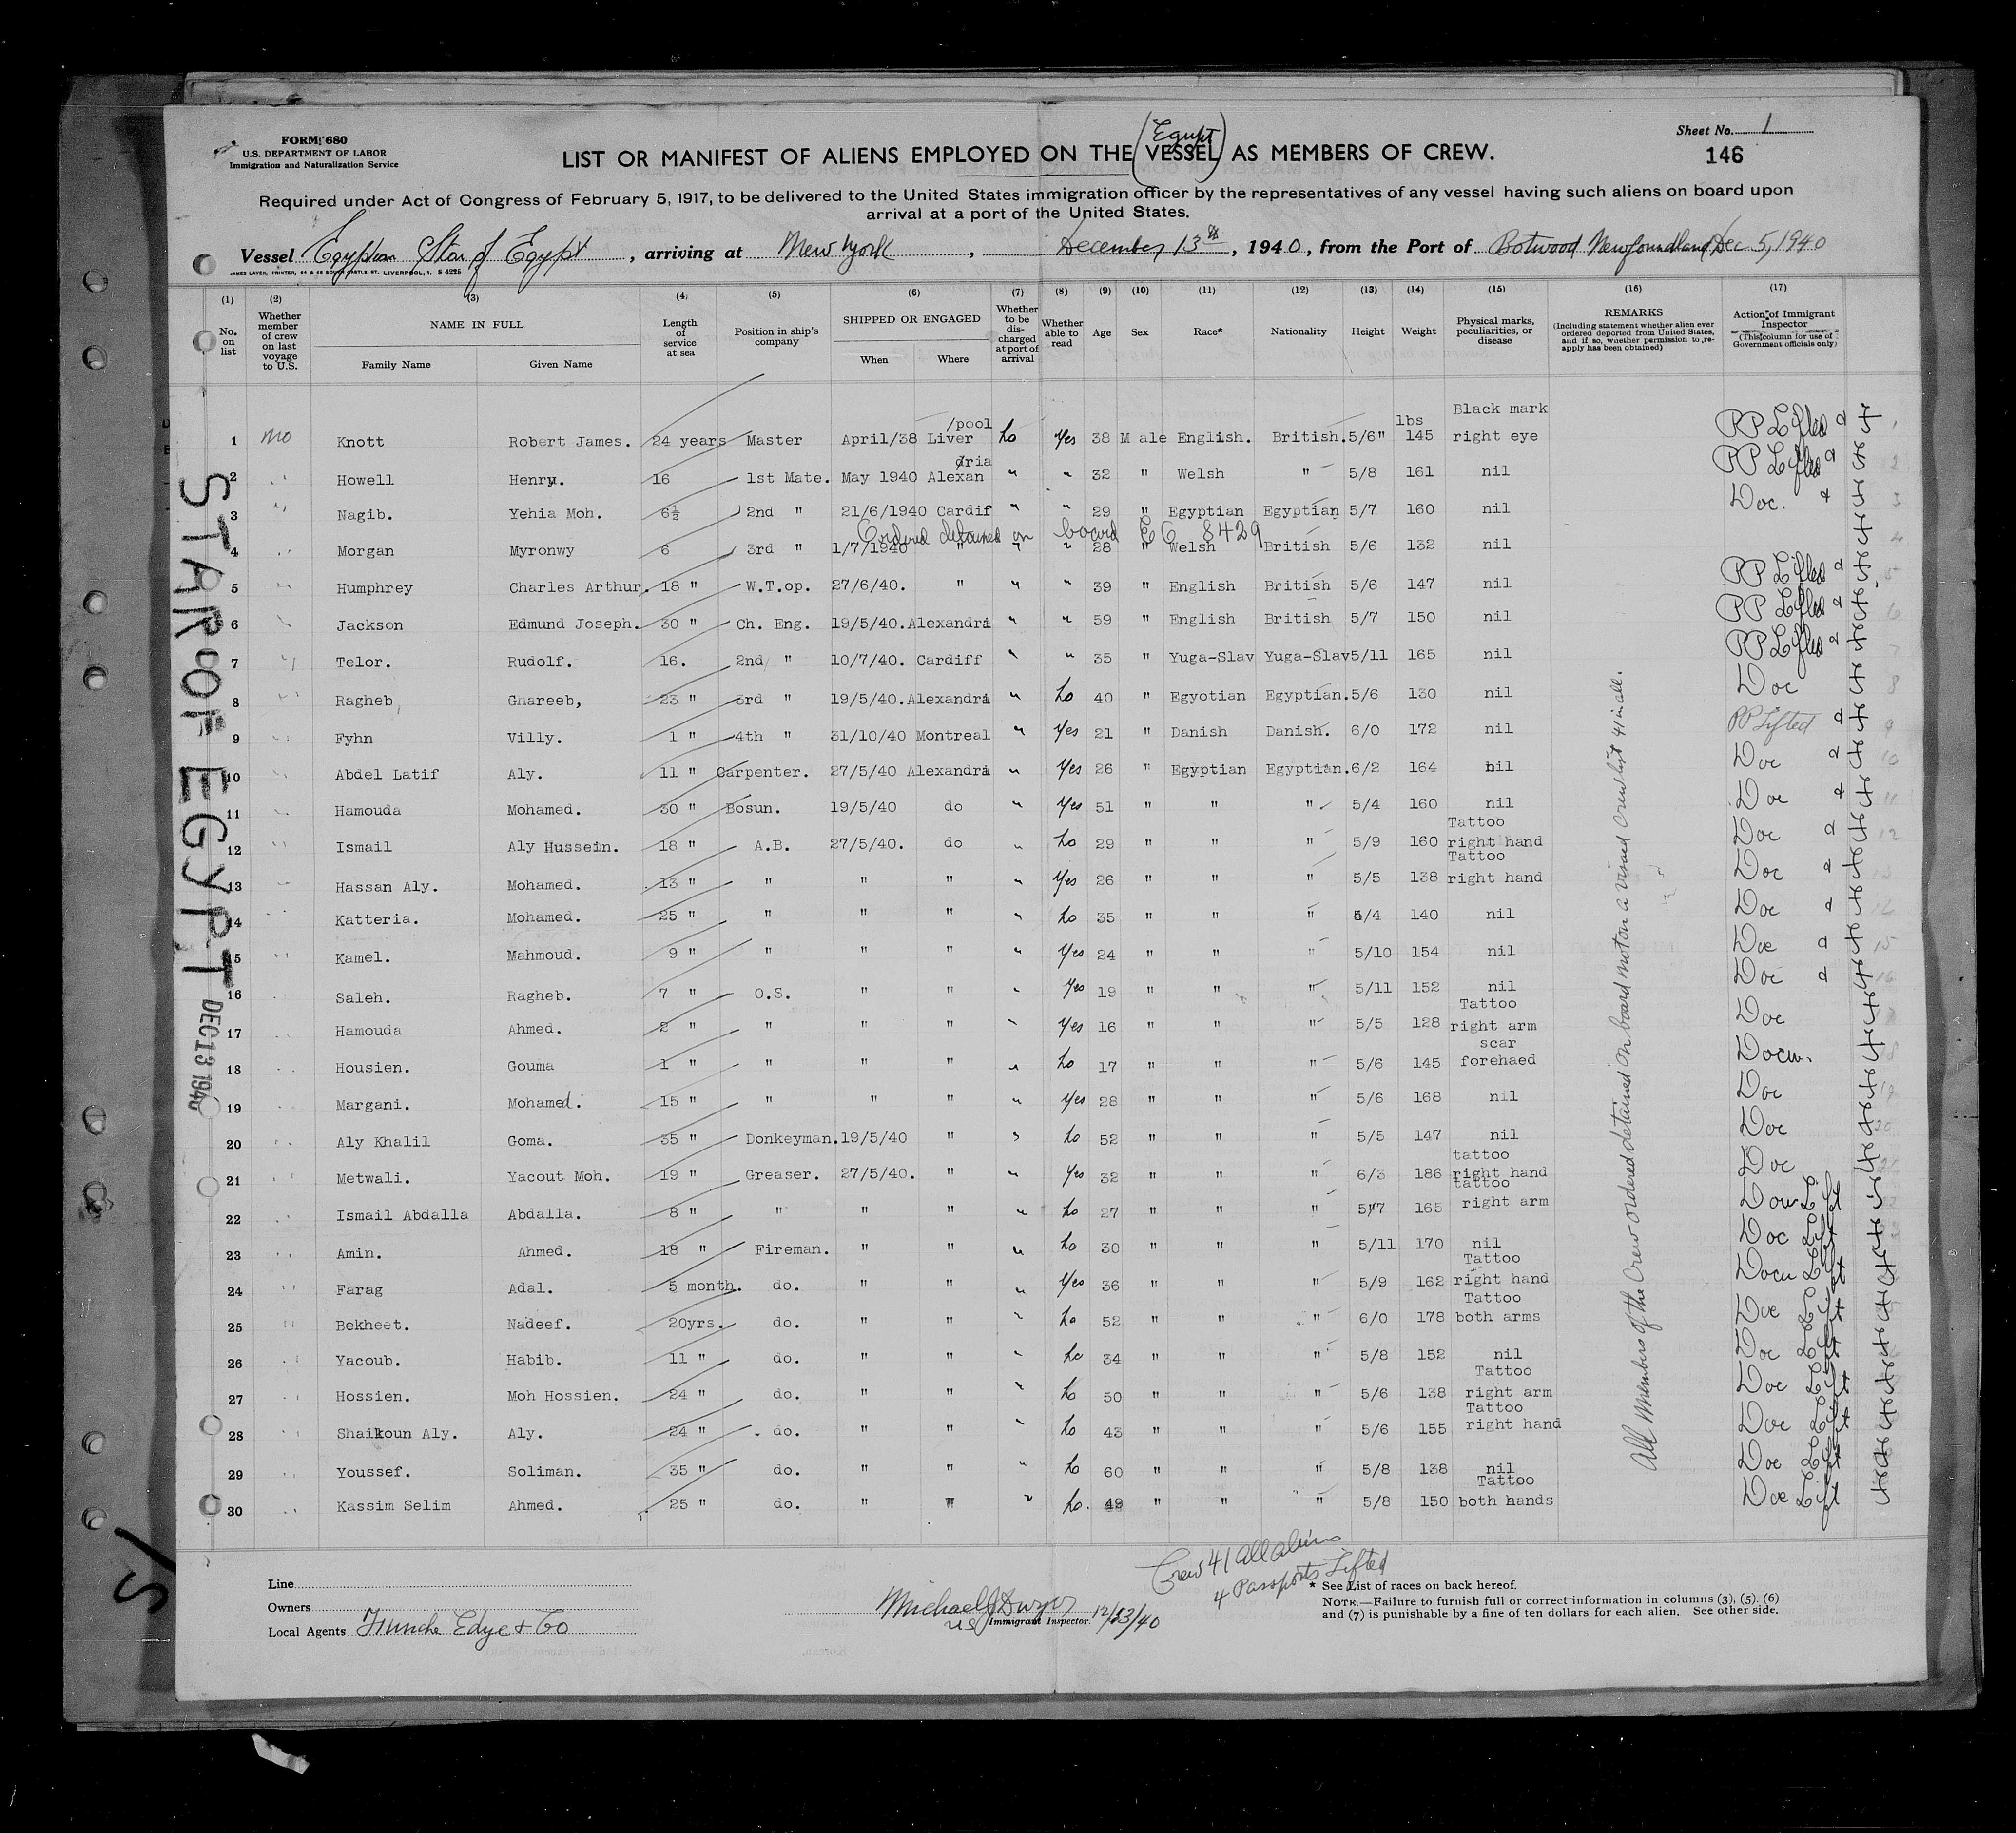 FORM 680
U.S. DEPARTMENT OF LABOR
Immigration and Naturalization Service
Sheet No. 1
146
(Egypt)
LIST OR MANIFEST OF ALIENS EMPLOYED ON THE VESSEL AS MEMBERS OF CREW.
Required under Act of Congress of February 5, 1917, to be delivered to the United States immigration officer by the representatives of any vessel having such aliens on board upon
arrival at a port of the United States.
Vessel Egyptian Star of Egypt, arriving at New York, December 13th, 1940, from the Port of Botwood Newfoundland Dec. 5, 1940
JAMES LAVER, PRINTER, 64 & 66 SOUTH CASTLE ST. LIVERPOOL, 1. S 4225
(1) No. on list
(2) Whether member of crew on last voyage to U.S.
(3) NAME IN FULL Family Name Given Name
(4) Length of service at sea
(5) Position in ship's company
(6) SHIPPED OR ENGAGED When Where
(7) Whether to be discharged at port of arrival
(8) Whether able to read
(9) Age
(10) Sex
(11) Race*
(12) Nationality
(13) Height
(14) Weight
(15) Physical marks, peculiarities, or disease
(16) REMARKS (Including statement whether alien ever ordered deported from United States, and if so, whether permission to re-apply has been obtained)
(17) Action of Immigrant Inspector (This column for use of Government officials only)
1 no Knott Robert James. 24 years Master April/38 Liver/pool No Yes 38 Male English. British. 5/6" lbs 145 Black mark right eye PP Lifted
2 " Howell Henry. 16 1st Mate. May 1940 Alexandria " " 32 " Welsh " 5/8 161 nil PP Lifted
3 " Nagib. Yehia Moh. 6½ 2nd " 21/6/1940 Cardif " " 29 " Egyptian Egyptian 5/7 160 nil Doc.
Ordered detained on board EG 8429
4 " Morgan Myronwy 6 3rd " 1/7/1940 " " " 28 " Welsh British 5/6 132 nil
5 " Humphrey Charles Arthur. 18 " W.T.op. 27/6/40. " " " 39 " English British 5/6 147 nil PP Lifted
6 " Jackson Edmund Joseph. 30 " Ch. Eng. 19/5/40. Alexandri " " 59 " English British 5/7 150 nil PP Lifted
7 " Telor. Rudolf. 16. 2nd " 10/7/40. Cardiff " " 35 " Yuga-Slav Yuga-Slav 5/11 165 nil PP Lifted
8 " Ragheb, Ghareeb, 23 " 3rd " 19/5/40. Alexandri " No 40 " Egyotian Egyptian. 5/6 130 nil Doc
9 " Fyhn Villy. 1 " 4th " 31/10/40 Montreal " Yes 21 " Danish Danish. 6/0 172 nil PP Lifted
10 " Abdel Latif Aly. 11 " Carpenter. 27/5/40 Alexandri " Yes 26 " Egyptian Egyptian. 6/2 164 nil Doc
11 " Hamouda Mohamed. 30 " Bosun. 19/5/40 do " Yes 51 " " " 5/4 160 nil Doc
12 " Ismail Aly Hussein. 18 " A.B. 27/5/40. do " No 29 " " " 5/9 160 Tattoo right hand Doc
13 " Hassan Aly. Mohamed. 13 " " " " " Yes 26 " " " 5/5 138 Tattoo right hand Doc
14 " Katteria. Mohamed. 25 " " " " " No 35 " " " 5/4 140 nil Doc
15 " Kamel. Mahmoud. 9 " " " " " Yes 24 " " " 5/10 154 nil Doc
16 " Saleh. Ragheb. 7 " O.S. " " " Yes 19 " " " 5/11 152 nil Doc
17 " Hamouda Ahmed. 2 " " " " " Yes 16 " " " 5/5 128 Tattoo right arm Doc
18 " Housien. Gouma 1 " " " " " No 17 " " " 5/6 145 scar forehaed Docu.
19 " Margani. Mohamed. 15 " " " " " Yes 28 " " " 5/6 168 nil Doc
20 " Aly Khalil Goma. 35 " Donkeyman. 19/5/40 " " No 52 " " " 5/5 147 nil Doc
21 " Metwali. Yacout Moh. 19 " Greaser. 27/5/40. " " Yes 32 " " " 6/3 186 tattoo right hand Doc
22 " Ismail Abdalla Abdalla. 8 " " " " " No 27 " " " 5/7 165 tattoo right arm Docu Lift
23 " Amin. Ahmed. 18 " Fireman. " " " No 30 " " " 5/11 170 nil Doc Lift
24 " Farag Adal. 5 month. do. " " " Yes 36 " " " 5/9 162 Tattoo right hand Docu Lift
25 " Bekheet. Nadeef. 20yrs. do. " " " No 52 " " " 6/0 178 Tattoo both arms Doc Lift
26 " Yacoub. Habib. 11 " do. " " " No 34 " " " 5/8 152 nil Doc Lift
27 " Hossien. Moh Hossien. 24 " do. " " " No 50 " " " 5/6 138 Tattoo right arm Doc Lift
28 " Shaikoun Aly. Aly. 24 " do. " " " No 43 " " " 5/6 155 Tattoo right hand Doc Lift
29 " Youssef. Soliman. 35 " do. " " " No 60 " " " 5/8 138 nil Doc Lift
30 " Kassim Selim Ahmed. 25 " do. " " " No. 49 " " " 5/8 150 Tattoo both hands Doc Lift
All Members of the Crew ordered detained on board not on a visaed crew list 41 in all.
STAR OF EGYPT
DEC 13 1940
Crew 41 all aliens
4 Passports Lifted
Line
Owners
Local Agents Funch Edye & Co
Michael J Dwyer
US Immigrant Inspector. 12/13/40
* See List of races on back hereof.
NOTE.—Failure to furnish full or correct information in columns (3), (5), (6)
and (7) is punishable by a fine of ten dollars for each alien. See other side.
S/